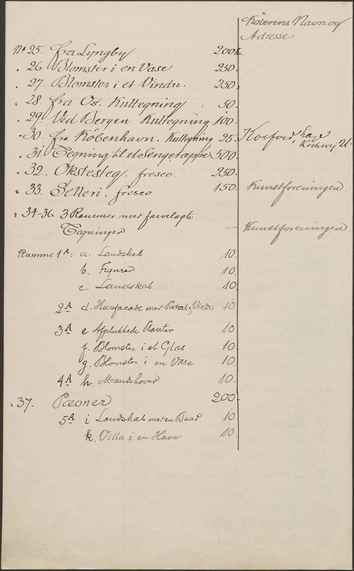 Køberens Navn og
Adresse
No 25. fra Lyngby 200
" 26. Blomster i en Vase 250
" 27. Blomster i et Vindu 250
" 28 fra Os. Kultegning 50
" 29 Ved Bergen Kultegning 100
" 30. fra København. Kultegning 25.
" 31. Tegning til et Sengetæppe 500
" 32. Oksesteg fresco 250
" 33. Selleri. fresco 150 Kunstforeningen
" 34-36. 3 Rammer med farvelagte
Tegninger Kunstforeningen
Ramme 1st: a. Landskab 10
b. Figurer 10
c Landskab 10
2d d. 10
3d e Afplukkede Planter 10
f. Blomster i et Glas 10
g. Blomster i en Vase 10
4d h. Mandshoved 10
" 37. Pæoner 200
5d i Landskab med en Baad 10
k. Villa i en Have 10